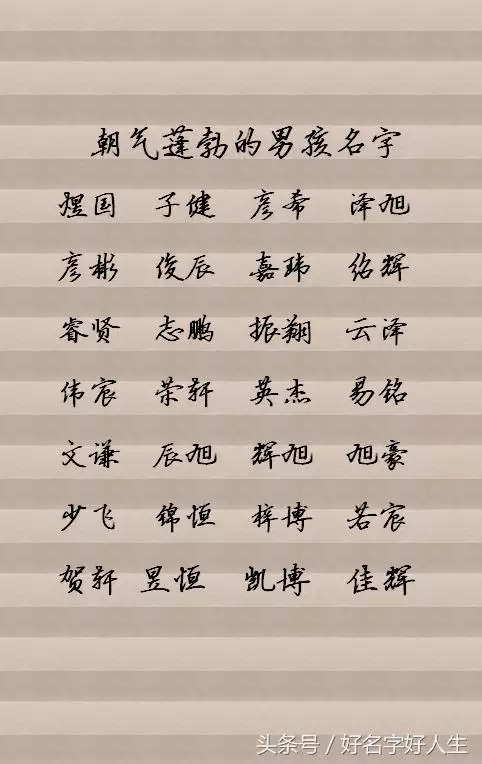 朝气蓬勃的男孩名字
煜国 子健 彦希 泽旭
彦彬 俊辰 嘉玮 绍辉
睿贤 志鹏 振翔 云泽
伟宸 荣轩 英杰 易铭
文谦 辰旭 辉旭 旭豪
少飞 锦恒 梓博 若宸
贺轩 昱恒 凯博 佳辉
头条号/好名字好人生